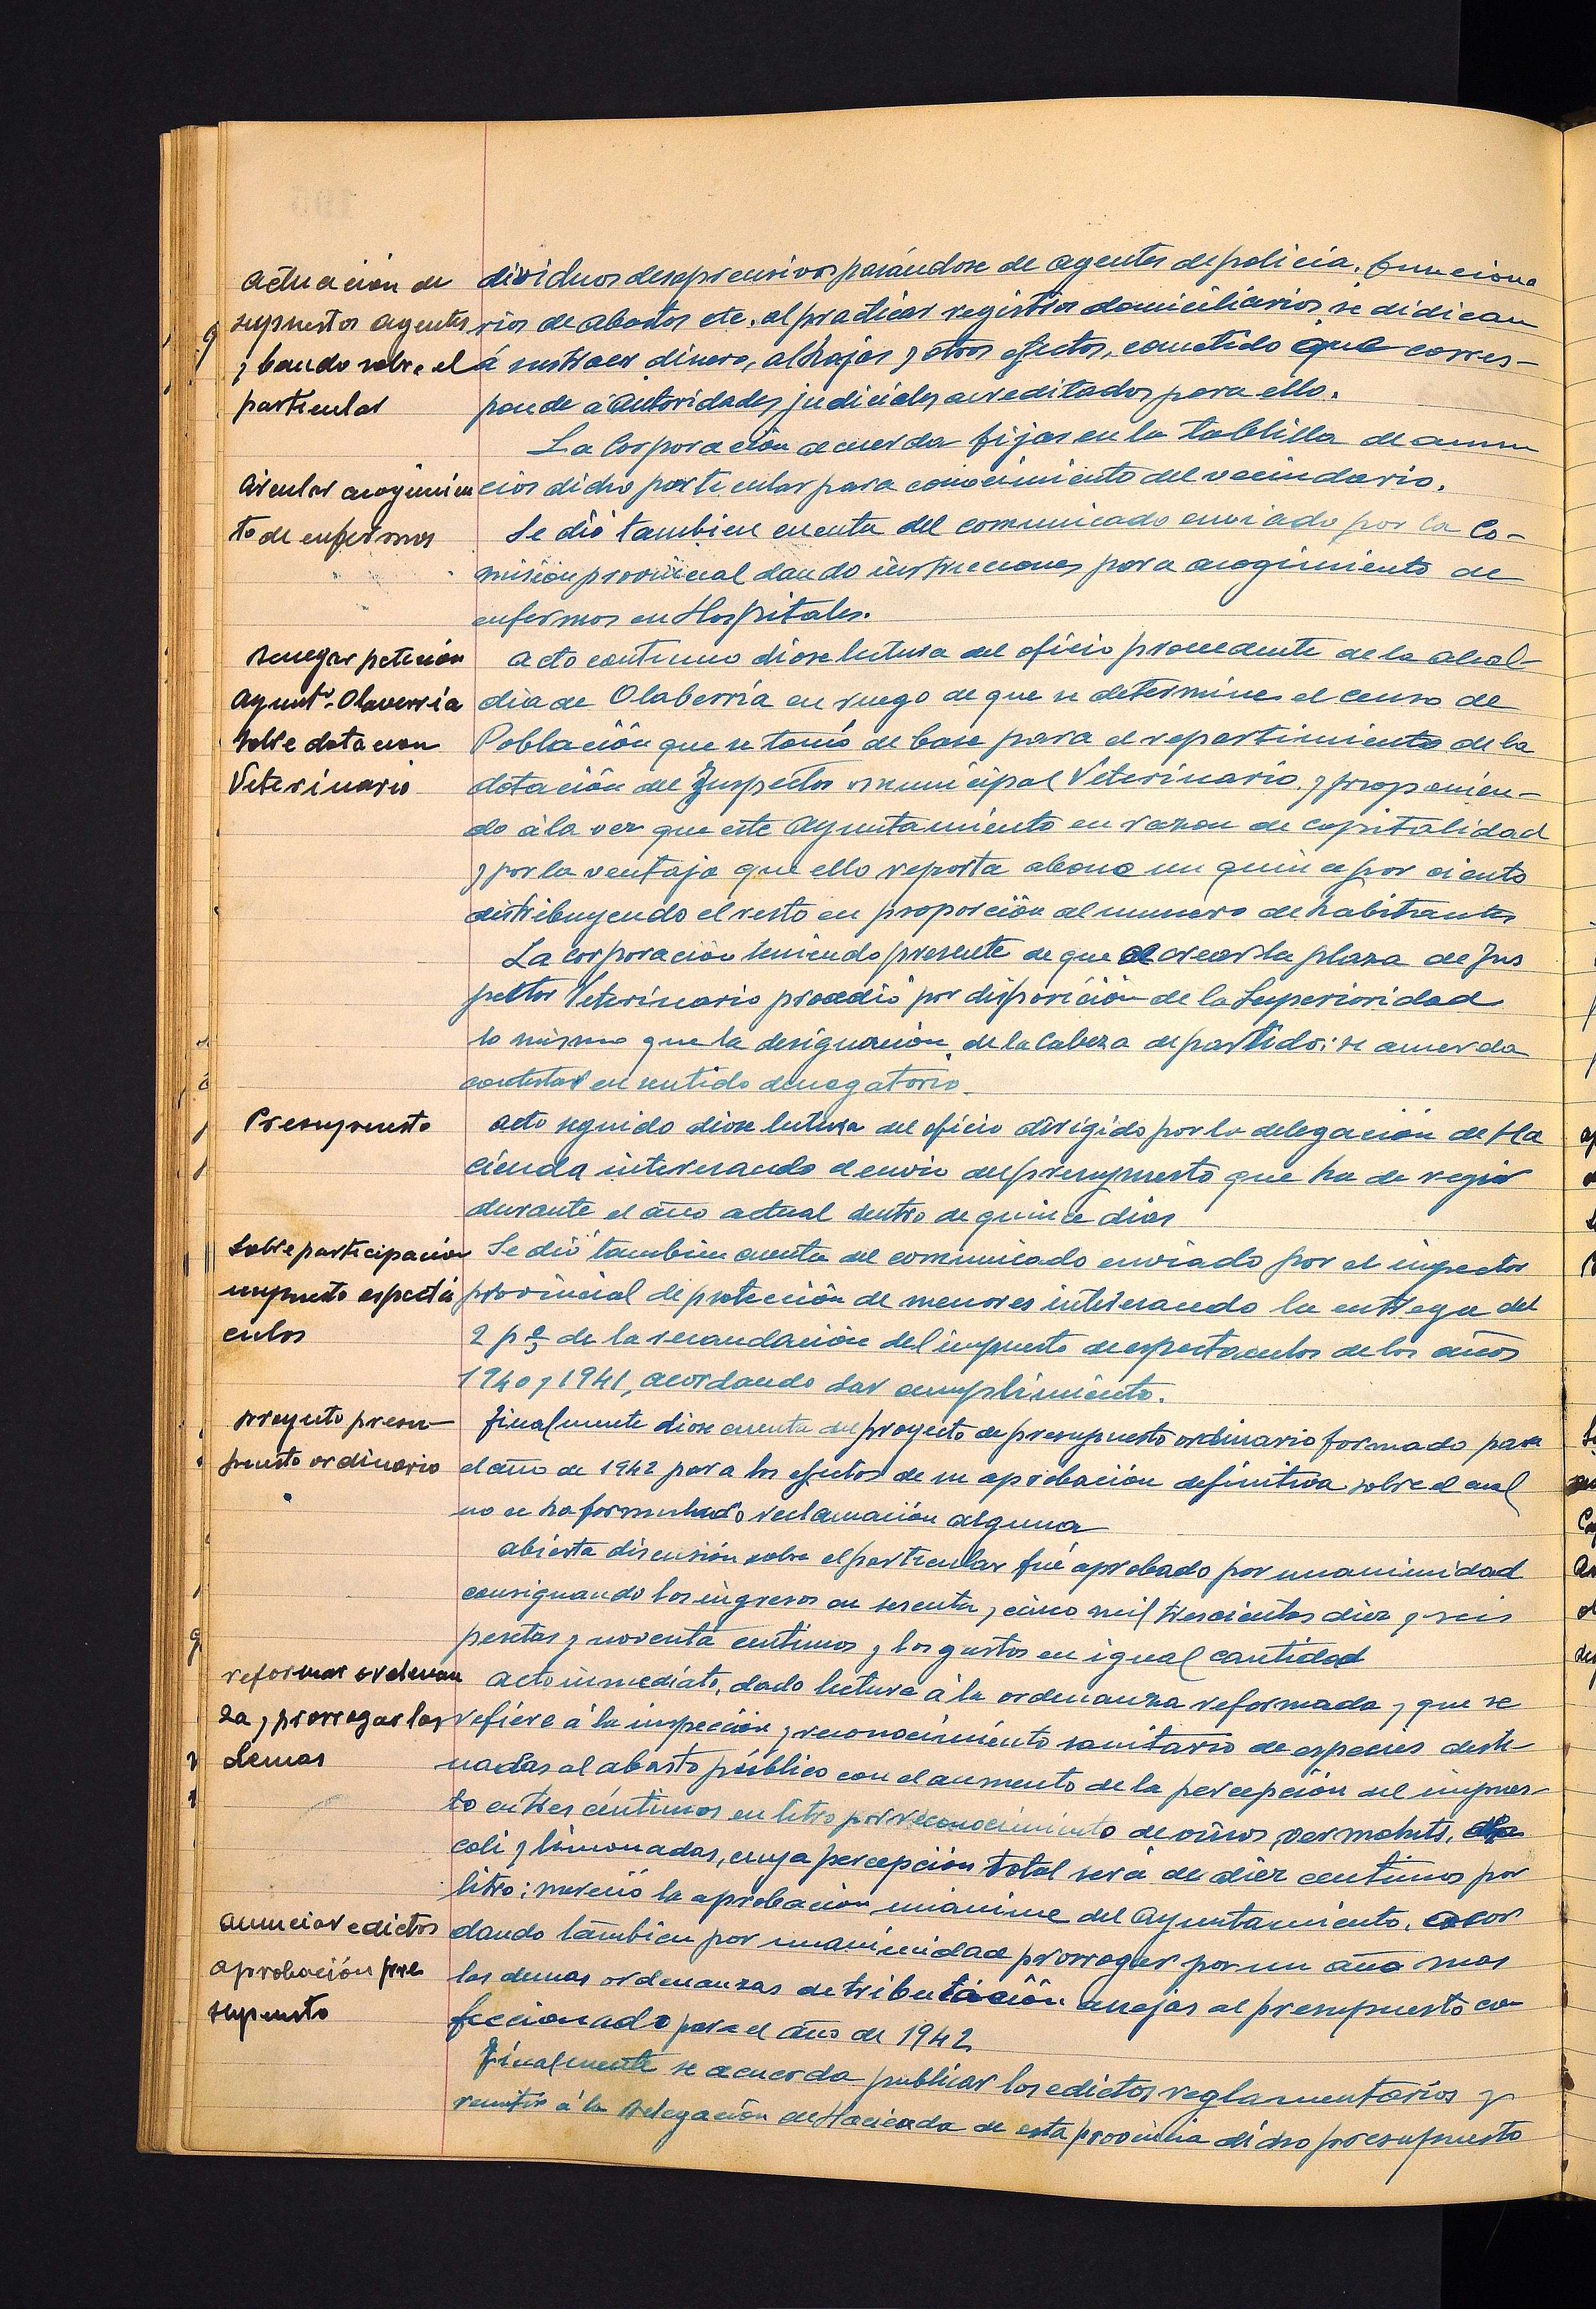 Actuación de
supuestos agentes
y bando sobre el
particular
dividuos desaprensivos pasándose de agentes de policia, funciona
rios de abastos etc. al practicar registros domiciliarios, se didican
á sustraer dinero, alhajas y otros efectos, cometido que corres-
ponde á autoridades judiciales acreditados para ello.
La Corporación acuerda fijar en la tablilla de anun
Circular acogimien
to de enfermos
cios dicho particular para conocimiento del vecindario.
Se dió tambien cuenta del comunicado enviado por la Co-
misión provincial dando instrucciones para acogimiento de
enfermos en Hospitales.
Denegar petición
Ayuntº. Olaverria
sobre dotacion
Veterinario
Acto continuo diose lectura del oficio procedente de la alcal-
dia de Olaberría en ruego de que se determine el censo de
Población que se tomó de base para el repartimiento de la
dotación del Inspector municipal Veterinario, y proponien-
do á la vez que este Ayuntamiento en razon de capitalidad
y por la ventaja que ello reporta abone un quince por ciento
distribuyendo el resto en proporción al numero de habitantes
La corporación teniendo presente de que al crear la plaza de Ins
pector Veterinario procedió por disposición de la Superioridad
lo mismo que la designación de la Cabeza de partido: se acuerda
contestar en sentido denegatorio.
Presupuesto
Acto seguido diose lectura del oficio dirigido por la delegación de Ha
cienda interesando el envio del presupuesto que ha de regir
durante el año actual dentro de quince dias
Sobre participación
impuesto espectá
culos
Se dió tambien cuenta del comunicado enviado por el inspector
provincial de protección de menores interesando la entrega del
2 p% de la recaudación del impuesto de espectaculos de los años
1940 y 1941, acordando dar cumplimiento.
Proyecto presu-
puesto ordinario
Finalmente diose cuenta del proyecto de presupuesto ordinario formado para
el año de 1942 para los efectos de su aprobación definitiva sobre el cual
no se ha formulado reclamación alguna
Abierta discusión sobre el particular fué aprobado por unanimidad
consignando los ingresos en sesenta y cinco mil trescientas diez y seis
pesetas y noventa centimos y los gastos en igual cantidad
reformar ordenan
za y prorrogar las
demas
Acto inmediato, dado lectura á la ordenanza reformada y que se
refiere á la inspección y reconocimiento sanitario de especies desti-
nadas al abasto público con el aumento de la percepción del impues-
to en tres céntimos en litro por reconocimiento de vinos, vermohuts,
coli y limonadas, cuya percepción total será de diez centimos por
litro: mereció la aprobación unánime del Ayuntamiento, acor
Anunciar edictos
aprobación pre
supuesto
dando tambien por unanimidad prorrogar por un año mas
las demas ordenanzas de tributación anejas al presupuesto con
feccionado para el año de 1942
Finalmente se acuerda publicar los edictos reglamentarios y
remitir á la Delegación de Hacienda de esta provincia dicho presupuesto